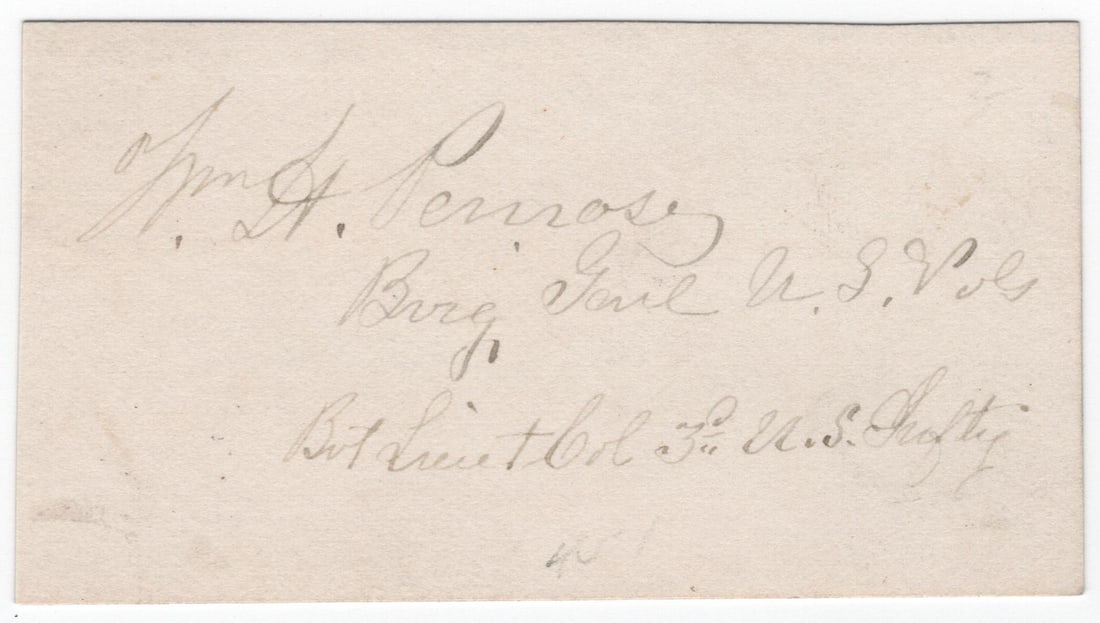 Wm H. Penrose
Brig Genl U.S. Vols
Bvt Lieut Col 3d U.S. Infty